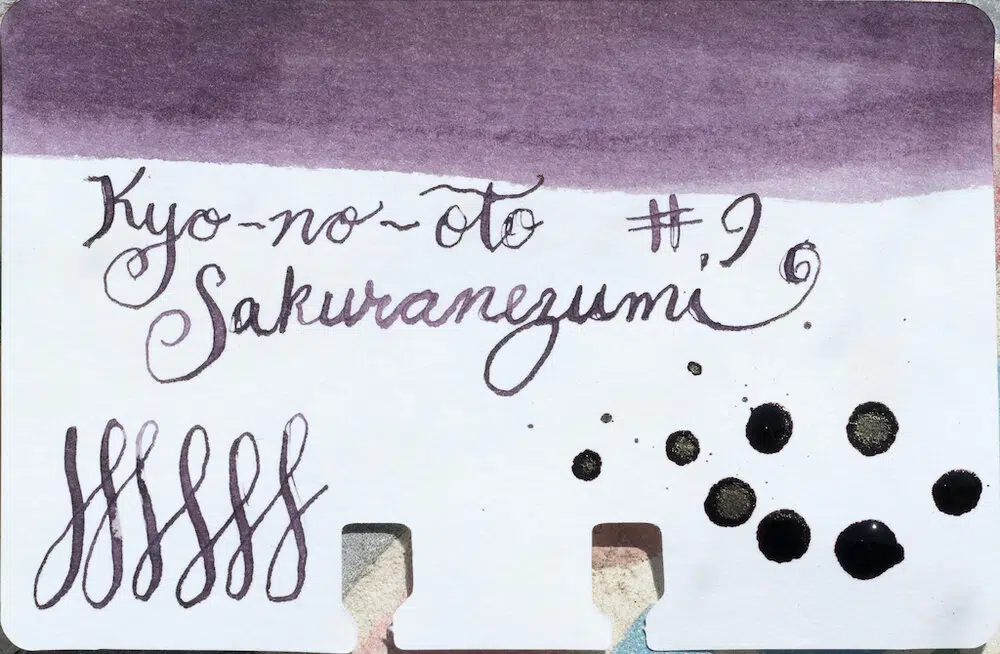 Kyo-no-oto #9
Sakuranezumi